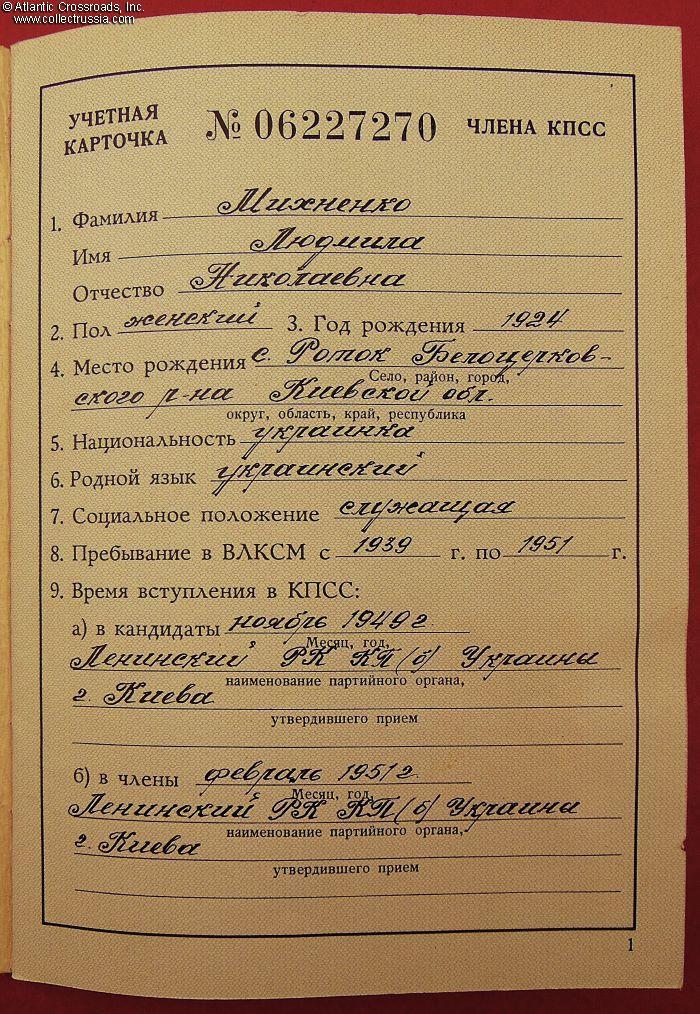 © Atlantic Crossroads, Inc.
www.collectrussia.com
УЧЕТНАЯ КАРТОЧКА № 06227270 ЧЛЕНА КПСС
1. Фамилия Михненко
Имя Людмила
Отчество Николаевна
2. Пол женский 3. Год рождения 1924
4. Место рождения с. Роток Белоцерков-
Село, район, город,
ского р-на Киевской обл.
округ, область, край, республика
5. Национальность украинка
6. Родной язык украинский
7. Социальное положение служащая
8. Пребывание в ВЛКСМ с 1939 г. по 1951 г.
9. Время вступления в КПСС:
а) в кандидаты ноябрь 1949 г.
Месяц, год,
Ленинский РК КП(б) Украины
наименование партийного органа,
г. Киева
утвердившего прием
б) в члены февраль 1951 г.
Месяц, год,
Ленинский РК КП(б) Украины
наименование партийного органа,
г. Киева
утвердившего прием
1